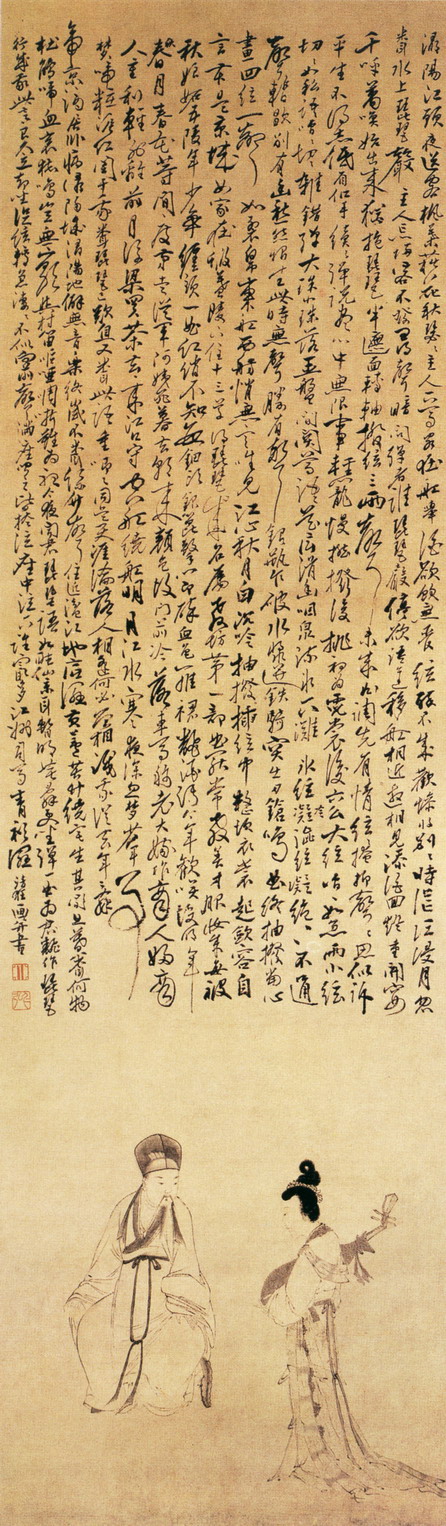 潯陽江頭夜送客楓葉荻花秋瑟瑟主人下馬客在船舉酒欲飲無管絃醉不成歡慘將別別時茫茫江浸月忽
聞水上琵琶聲主人忘歸客不發尋聲暗問彈者誰琵琶聲停欲語遲移船相近邀相見添酒回燈重開宴
千呼萬喚始出來猶抱琵琶半遮面轉軸撥絃三兩聲未成曲調先有情絃絃掩抑聲聲思似訴
平生不得志低眉信手續續彈說盡心中無限事輕攏慢撚撥復挑初為霓裳後六么大絃嘈嘈如急雨小絃
切切如私語嘈嘈切切雜錯彈大珠小珠落玉盤間關鶯語花底滑幽咽泉流水下灘水泉冷澀絃凝絕凝絕不通
聲暫歇別有幽愁暗恨生此時無聲勝有聲銀瓶乍破水漿迸鐵騎突出刀鎗鳴曲終抽撥當心
畫四絃一聲如裂帛東船西舫悄無言唯見江心秋月白沉吟抽撥插絃中整頓衣裳起斂容自
言本是京城女家在蝦蟆陵下住十三學得琵琶成名屬教坊第一部曲罷常教善才服妝成每被
秋娘妬五陵年少爭纏頭一曲紅綃不知數鈿頭銀篦擊節碎血色羅裙翻酒污今年歡笑復明年
春月春花等閒度弟走從軍阿姨死暮去朝來顏色改門前冷落車馬稀老大嫁作商人婦商
人重利輕別離前月浮梁買茶去去來江口守空船繞船明月江水寒夜深忽夢少年事
夢啼粧淚紅闌干我聞琵琶已歎息又聞此語重唧唧同是天涯淪落人相逢何必曾相識我從去年辭
帝京謫居臥病潯陽城潯陽地僻無音樂終歲不聞絲竹聲住近湓江地低濕黃蘆苦竹繞宅生其間旦暮聞何物
杜鵑啼血哀猿鳴豈無山歌與村笛嘔啞嘲哳難為聽今夜聞君琵琶語如聽仙樂耳暫明莫辭更坐彈一曲為君翻作琵琶
行感我此言良久立却坐促絃絃轉急凄凄不似向前聲滿座聞之皆掩泣座中泣下誰最多江州司馬青衫濕
清狂畫并書